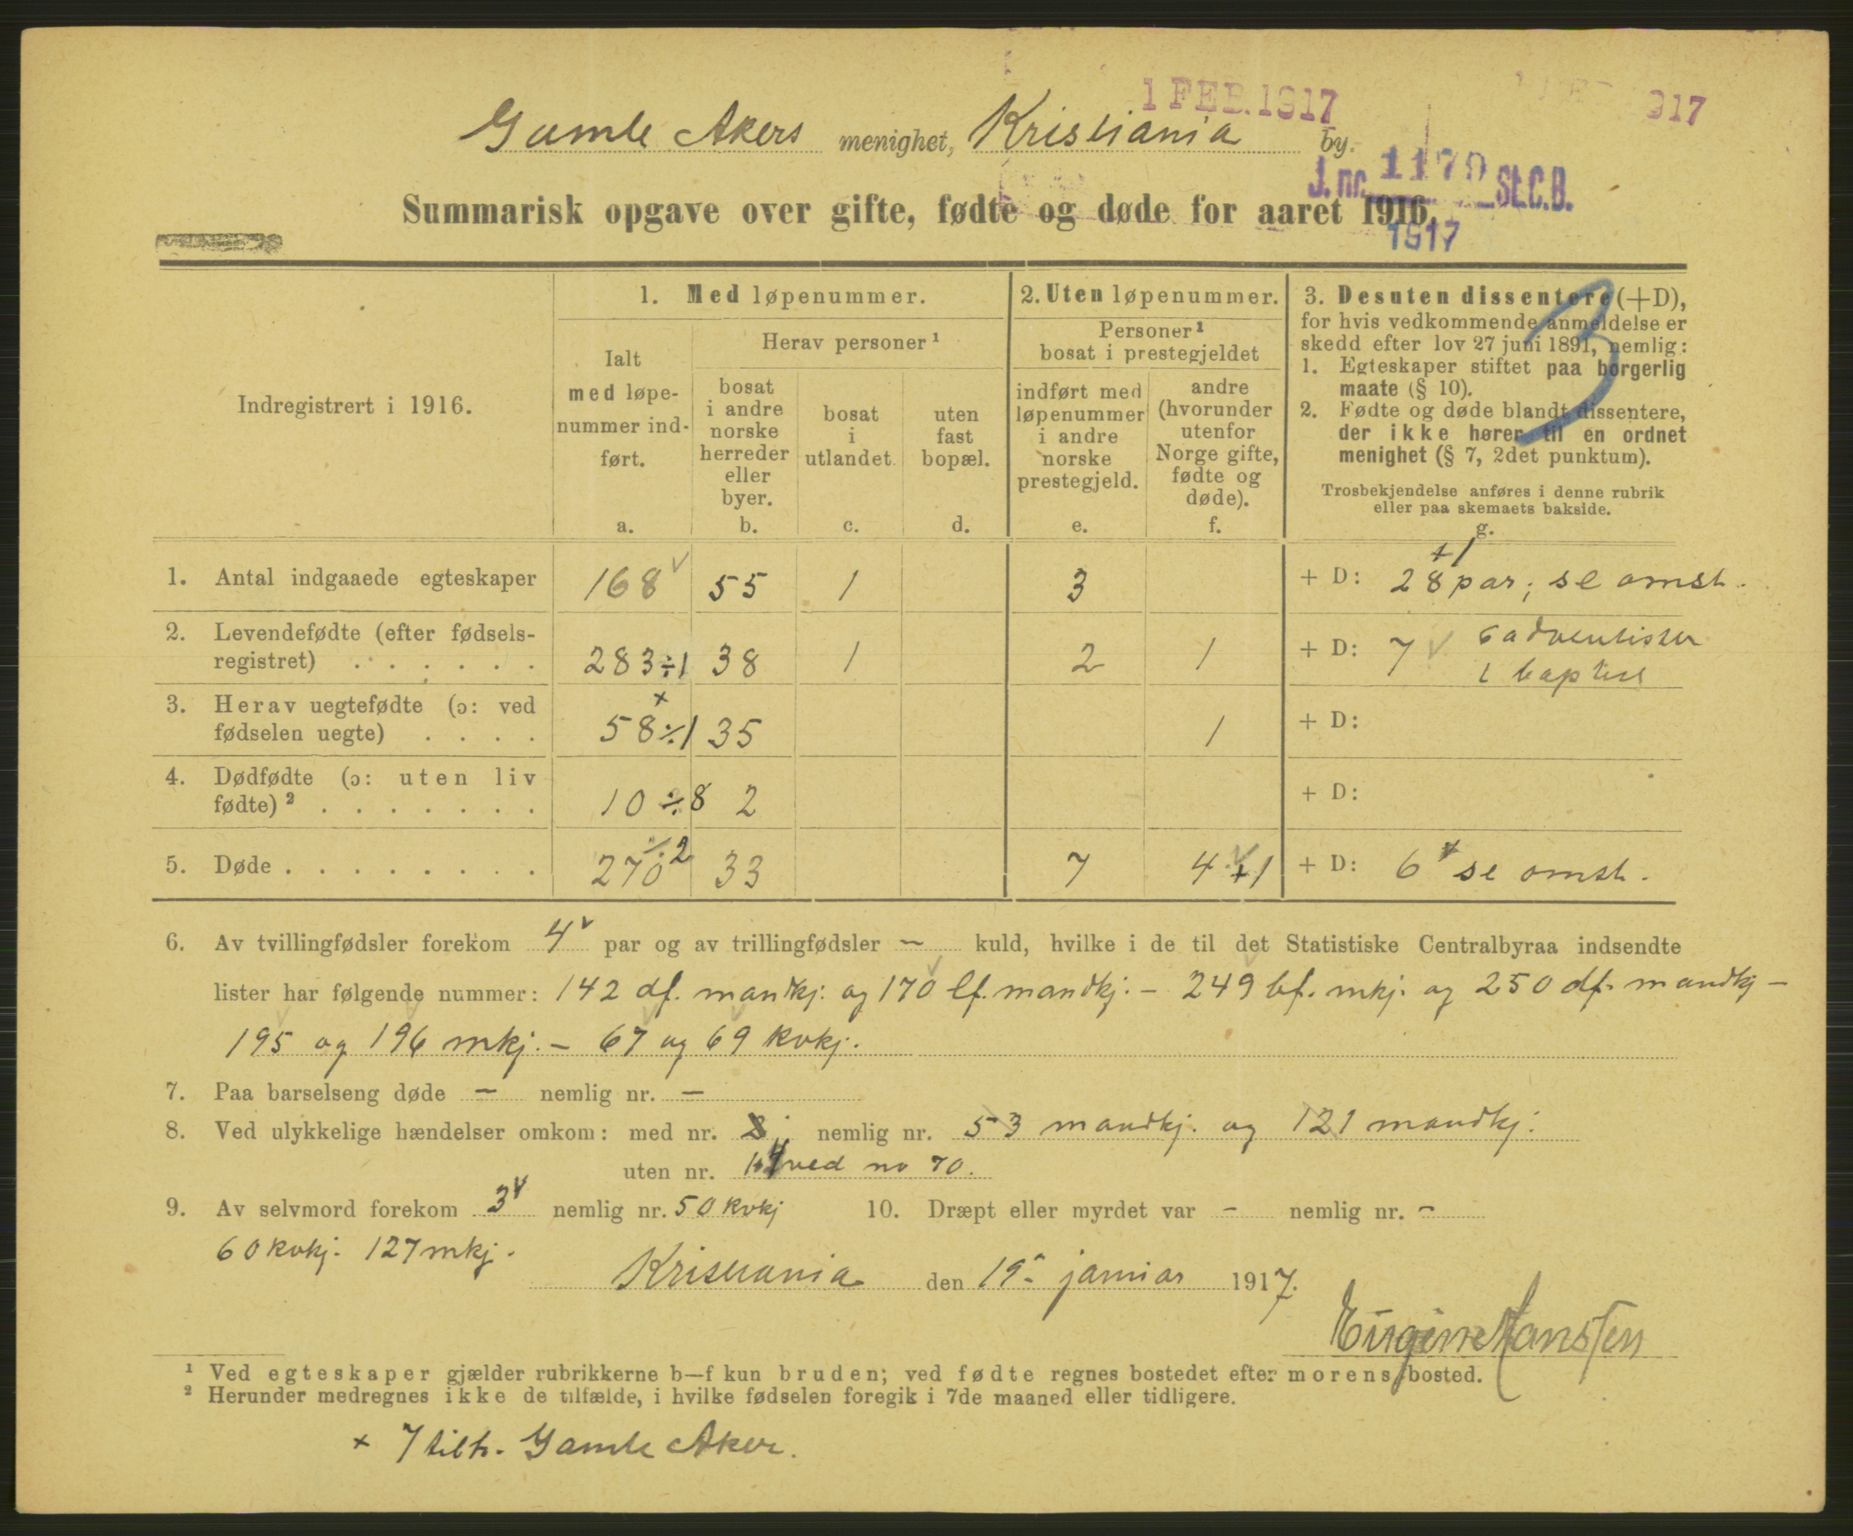 1 FEB. 1917
917
Gamle Akers menighet, Kristiania by.
J. nr. 1170 St.C.B.
1917
Summarisk opgave over gifte, fødte og døde for aaret 1916.
3
Indregistrert i 1916.
1. Med løpenummer.
Ialt
med løpe-
nummer ind-
ført.
a.
Herav personer ¹
bosat
i andre
norske
herreder
eller
byer.
b.
bosat
i
utlandet.
c.
uten
fast
bopæl.
d.
2. Uten løpenummer.
Personer ¹
bosat i prestegjeldet
indført med
løpenummer
i andre
norske
prestegjeld.
e.
andre
(hvorunder
utenfor
Norge gifte,
fødte og
døde).
f.
3. Desuten dissentere (+D),
for hvis vedkommende anmeldelse er
skedd efter lov 27 juni 1891, nemlig:
1. Egteskaper stiftet paa borgerlig
maate (§ 10).
2. Fødte og døde blandt dissentere,
der ikke hører til en ordnet
menighet (§ 7, 2det punktum).
Trosbekjendelse anføres i denne rubrik
eller paa skemaets bakside.
g.
+1
1. Antal indgaaede egteskaper 168 55 1 3 + D: 28 par; se omst.
2. Levendefødte (efter fødsels-
registret) . . . . . . 283 ÷1 38 1 2 1 + D: 7 6 adventister
1 baptist
3. Herav uegtefødte (ɔ: ved
fødselen uegte) . . . . 58 × ÷1 35 1 + D:
4. Dødfødte (ɔ: uten liv
fødte) ² . . . . . . . 10 ÷8 2 + D:
5. Døde . . . . . . . . . 270 ÷2 33 7 4 +1 + D: 6 se omst.
6. Av tvillingfødsler forekom 4 par og av trillingfødsler – kuld, hvilke i de til det Statistiske Centralbyraa indsendte
lister har følgende nummer: 142 df. mandkj. og 170 lf. mandkj. – 249 lf. mkj. og 250 df. mandkj –
195 og 196 mkj. – 67 og 69 kvkj.
7. Paa barselseng døde – nemlig nr. –
8. Ved ulykkelige hændelser omkom: med nr. nemlig nr. 53 mandkj. og 121 mandkj.
uten nr. ved no 70.
9. Av selvmord forekom 3 nemlig nr. 50 kvkj 10. Dræpt eller myrdet var – nemlig nr. –
60 kvkj. 127 mkj.
Kristiania den 19 januar 1917.
Eugen Hanssen
¹ Ved egteskaper gjælder rubrikkerne b—f kun bruden; ved fødte regnes bostedet efter morens bosted.
² Herunder medregnes ikke de tilfælde, i hvilke fødselen foregik i 7de maaned eller tidligere.
× 7 tilh. Gamle Aker.